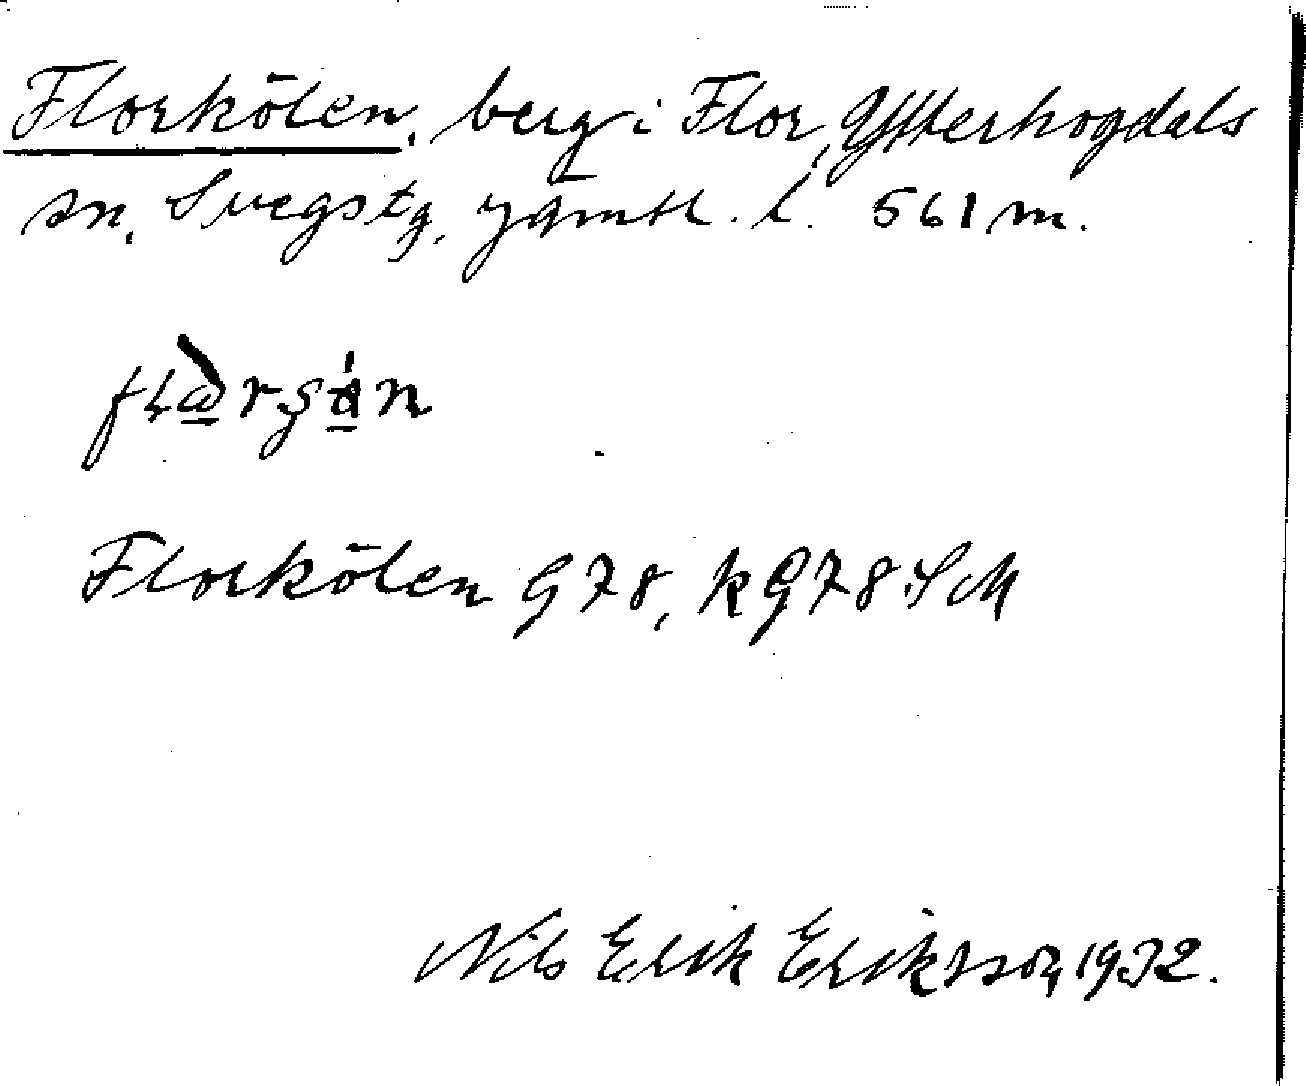 Florkölen, berg i Flor, Ytterhogdals
sn, Svegs tg, Jämtl. l. 561 m.
Florkölen G 78, k G 78 SM
Nils Erik Eriksson, 1932.